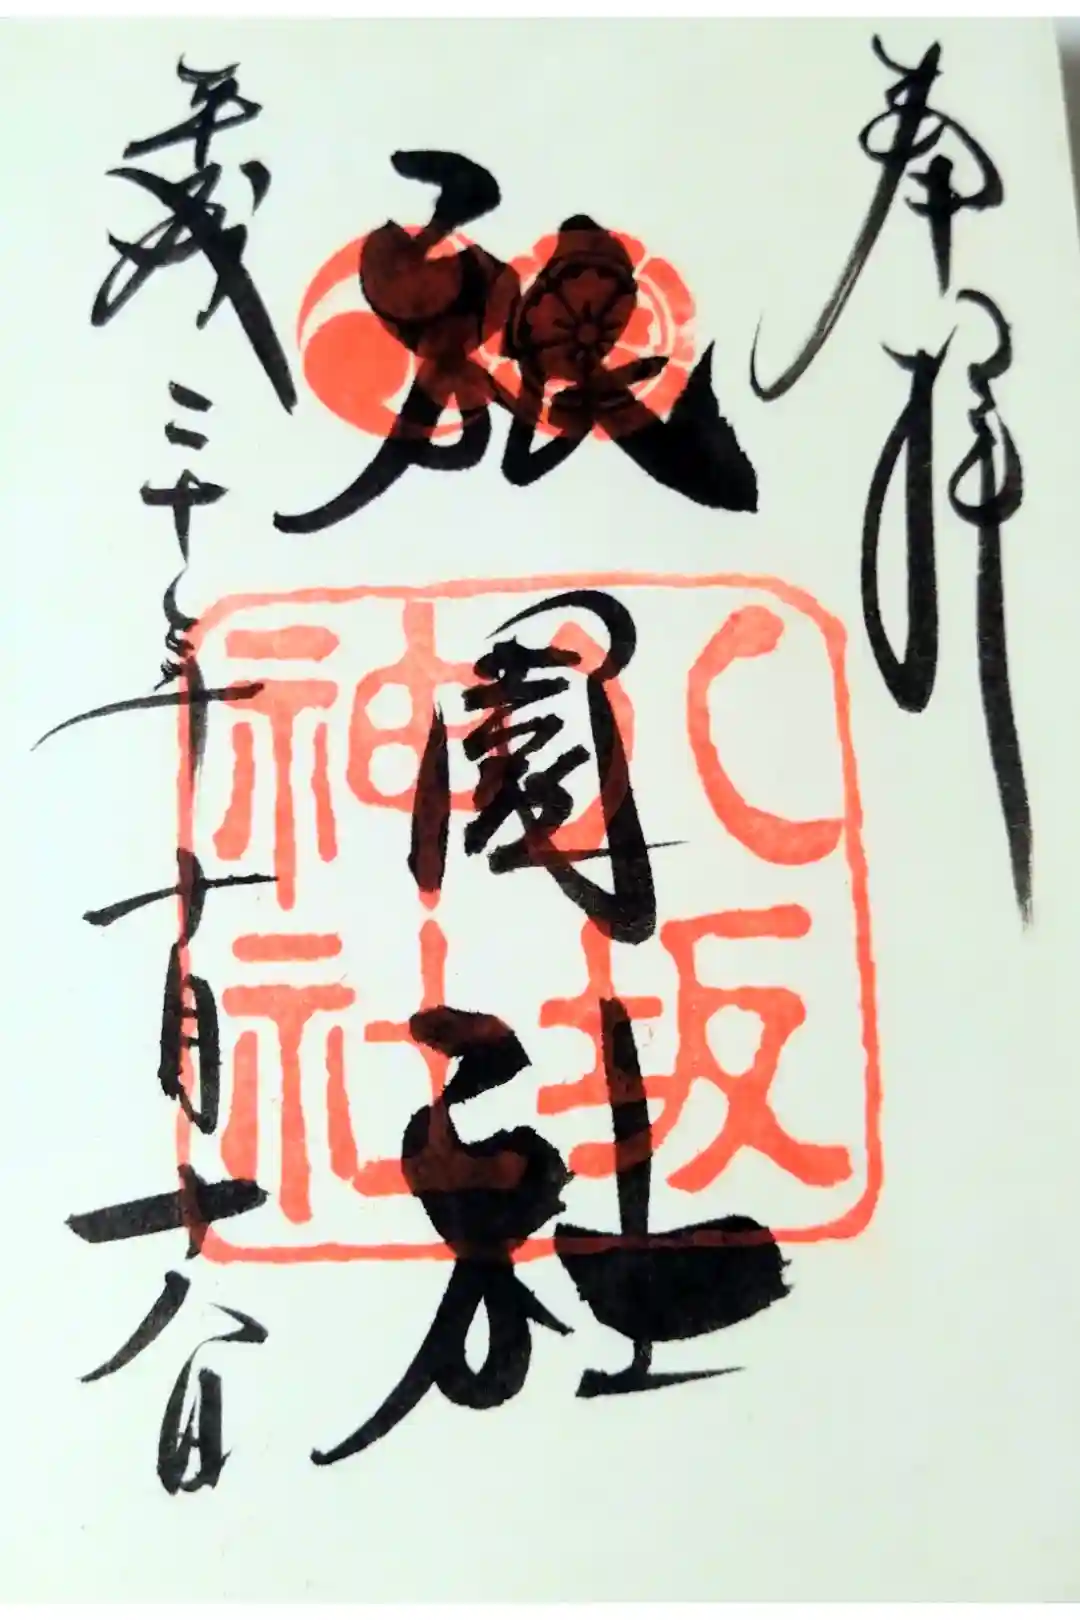 奉拝
祇園社
八坂
神社
平成二十年十月十八日